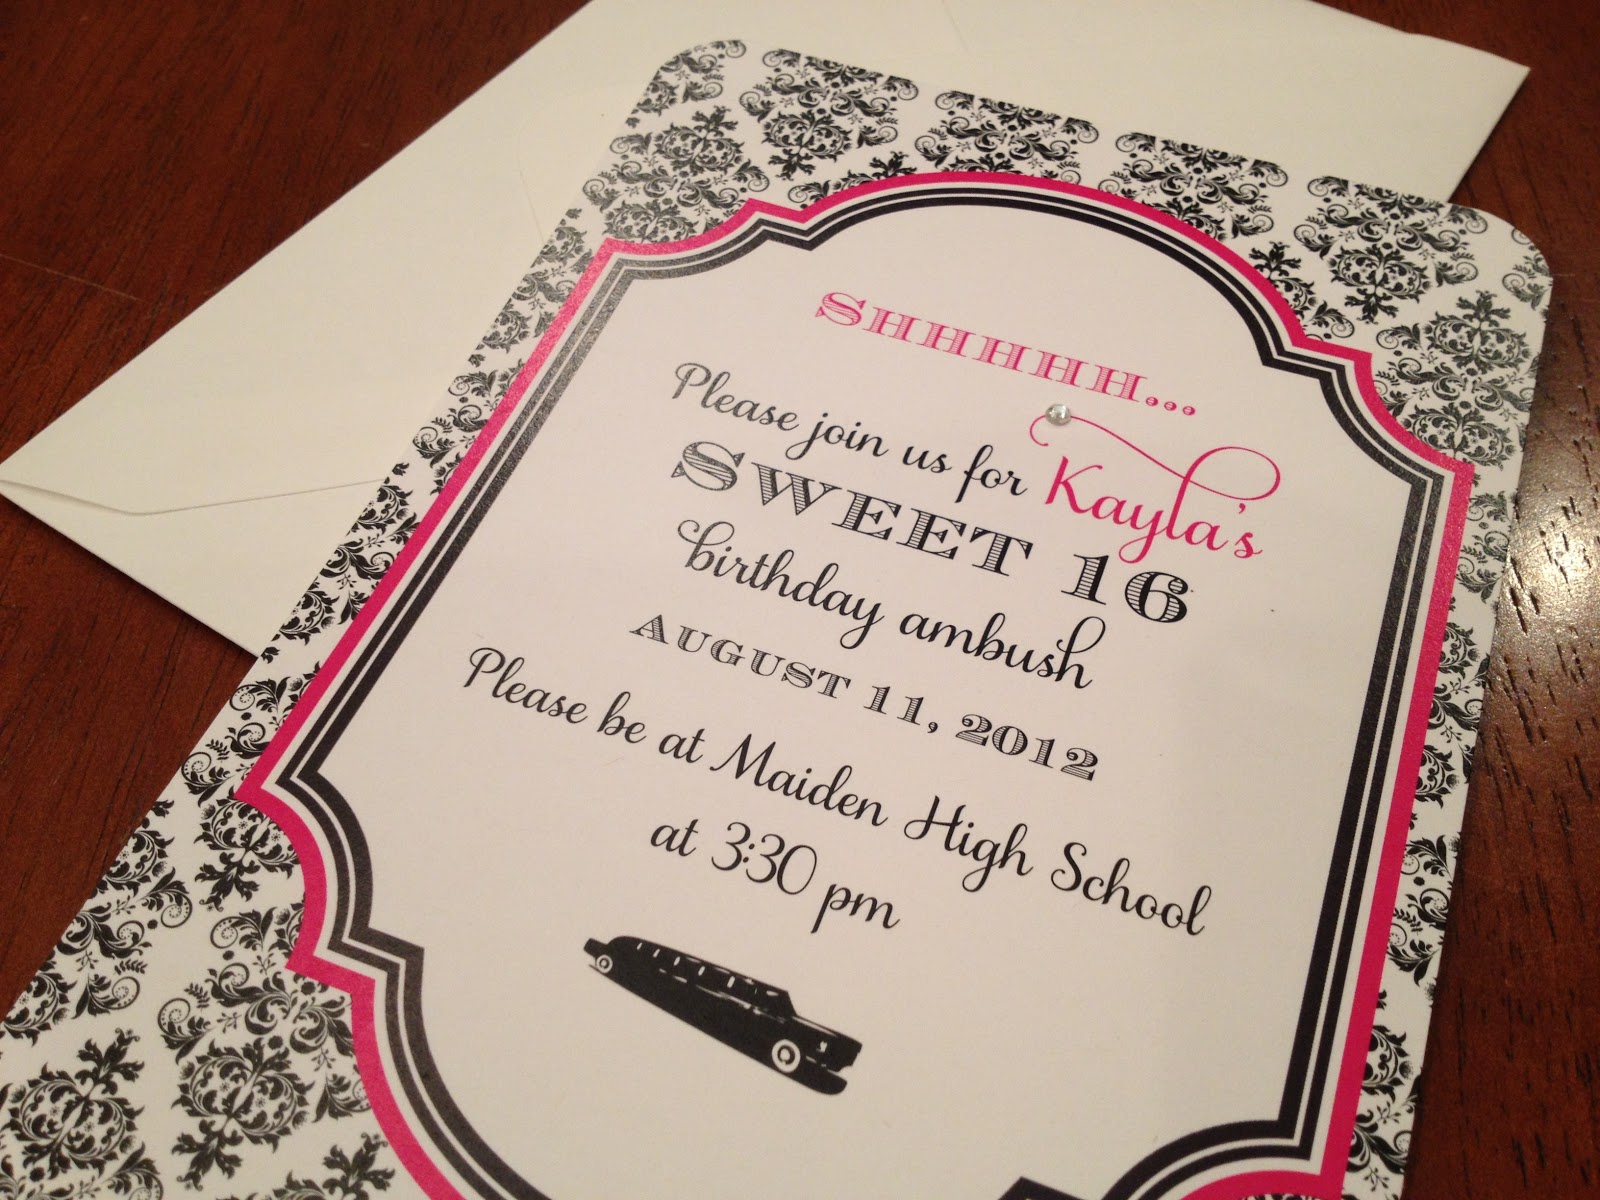 SHHHHH...
Please join us for Kayla's
SWEET 16
birthday ambush
AUGUST 11, 2012
Please be at Maiden High School
at 3:30 pm